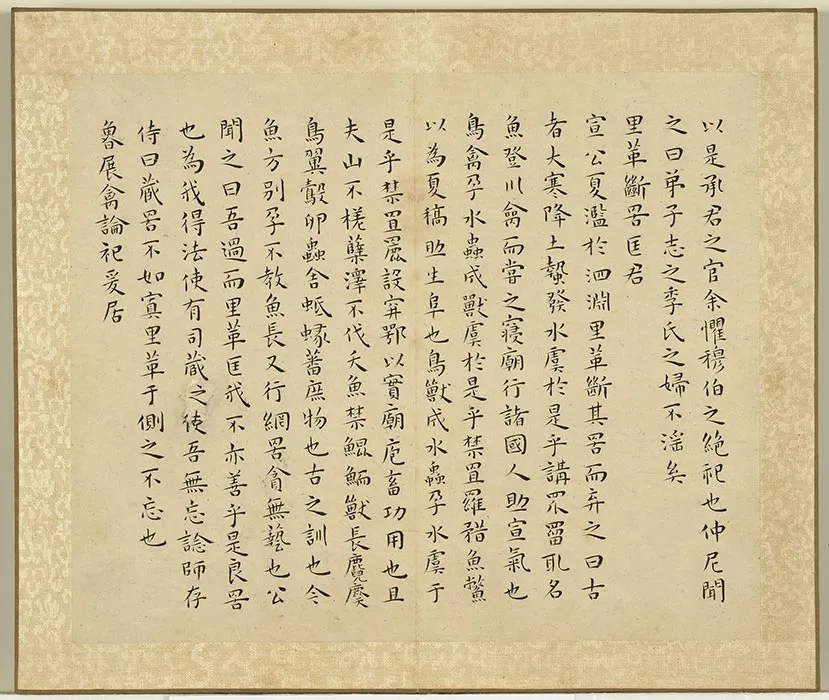 以是承君之官余懼穆伯之絕祀也仲尼聞
之曰弟子志之季氏之婦不淫矣
里革斷罟匡君
宣公夏濫於泗淵里革斷其罟而弃之曰古
者大寒降土蟄發水虞於是乎講罛罶取名
魚登川禽而嘗之寢廟行諸國人助宣氣也
鳥禽孕水蟲成獸虞於是乎禁罝羅矠魚鱉
以為夏槁助生阜也鳥獸成水蟲孕水虞于
是乎禁罝䍡設穽鄂以實廟庖畜功用也且
夫山不槎蘖澤不伐夭魚禁鯤鮞獸長麑麌
鳥翼鷇卵蟲舍蚳蝝蕃庶物也古之訓也今
魚方別孕不教魚長又行網罟貪無藝也公
聞之曰吾過而里革匡我不亦善乎是良罟
也為我得法使有司藏之使吾無忘諗師存
侍曰藏罟不如寘里革于側之不忘也
魯展禽論祀爰居